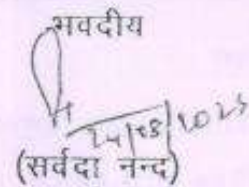 भवदीय
24/08/2023
(सर्वदा नन्द)